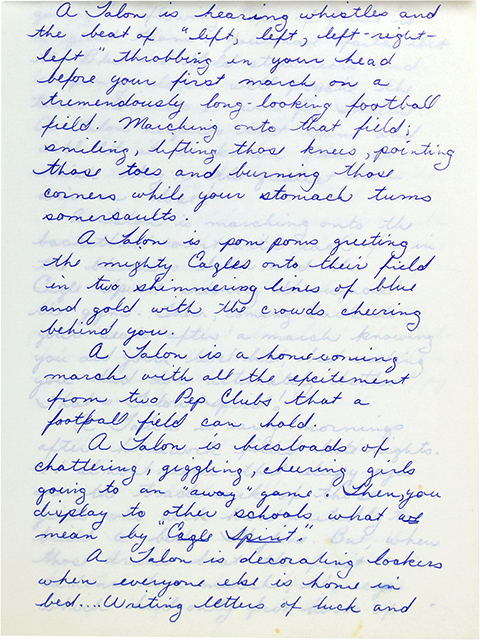 A Talon is hearing whistles and
the beat of "left, left, left-right-
left" throbbing in your head
before your first march on a
tremendously long-looking football
field. Marching onto that field;
smiling, lifting those knees, pointing
those toes and burning those
corners while your stomach turns
somersaults.
A Talon is pom poms greeting
the mighty Eagles onto their field
in two shimmering lines of blue
and gold with the crowds cheering
behind you.
A Talon is a homecoming
march with all the excitement
from two Pep Clubs that a
football field can hold.
A Talon is busloads of
chattering, giggling, cheering girls
going to an "away" game. Then, you
display to other schools what
mean by "Eagle Spirit."
A Talon is decorating lockers
when everyone else is home in
bed....Writing letters of luck and